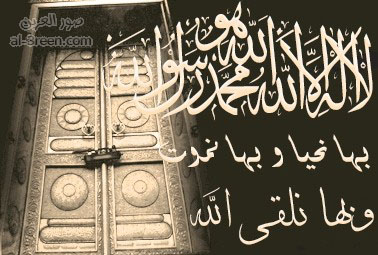 صور العرين
al-3reen.com
لا اله الا الله محمد رسول الله
بها نحيا و بها نموت
وبها نلقى الله